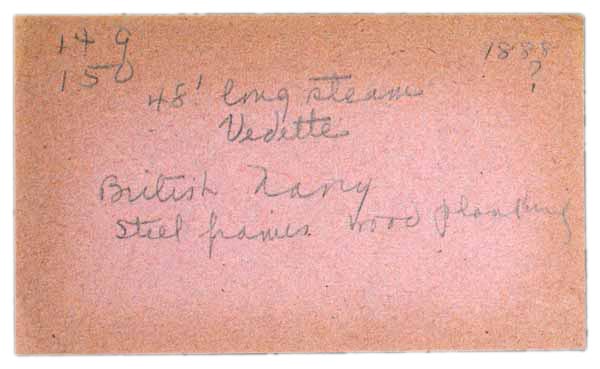 149
150
1888
?
48' long steam
Vedette
British Navy
steel frames wood planking